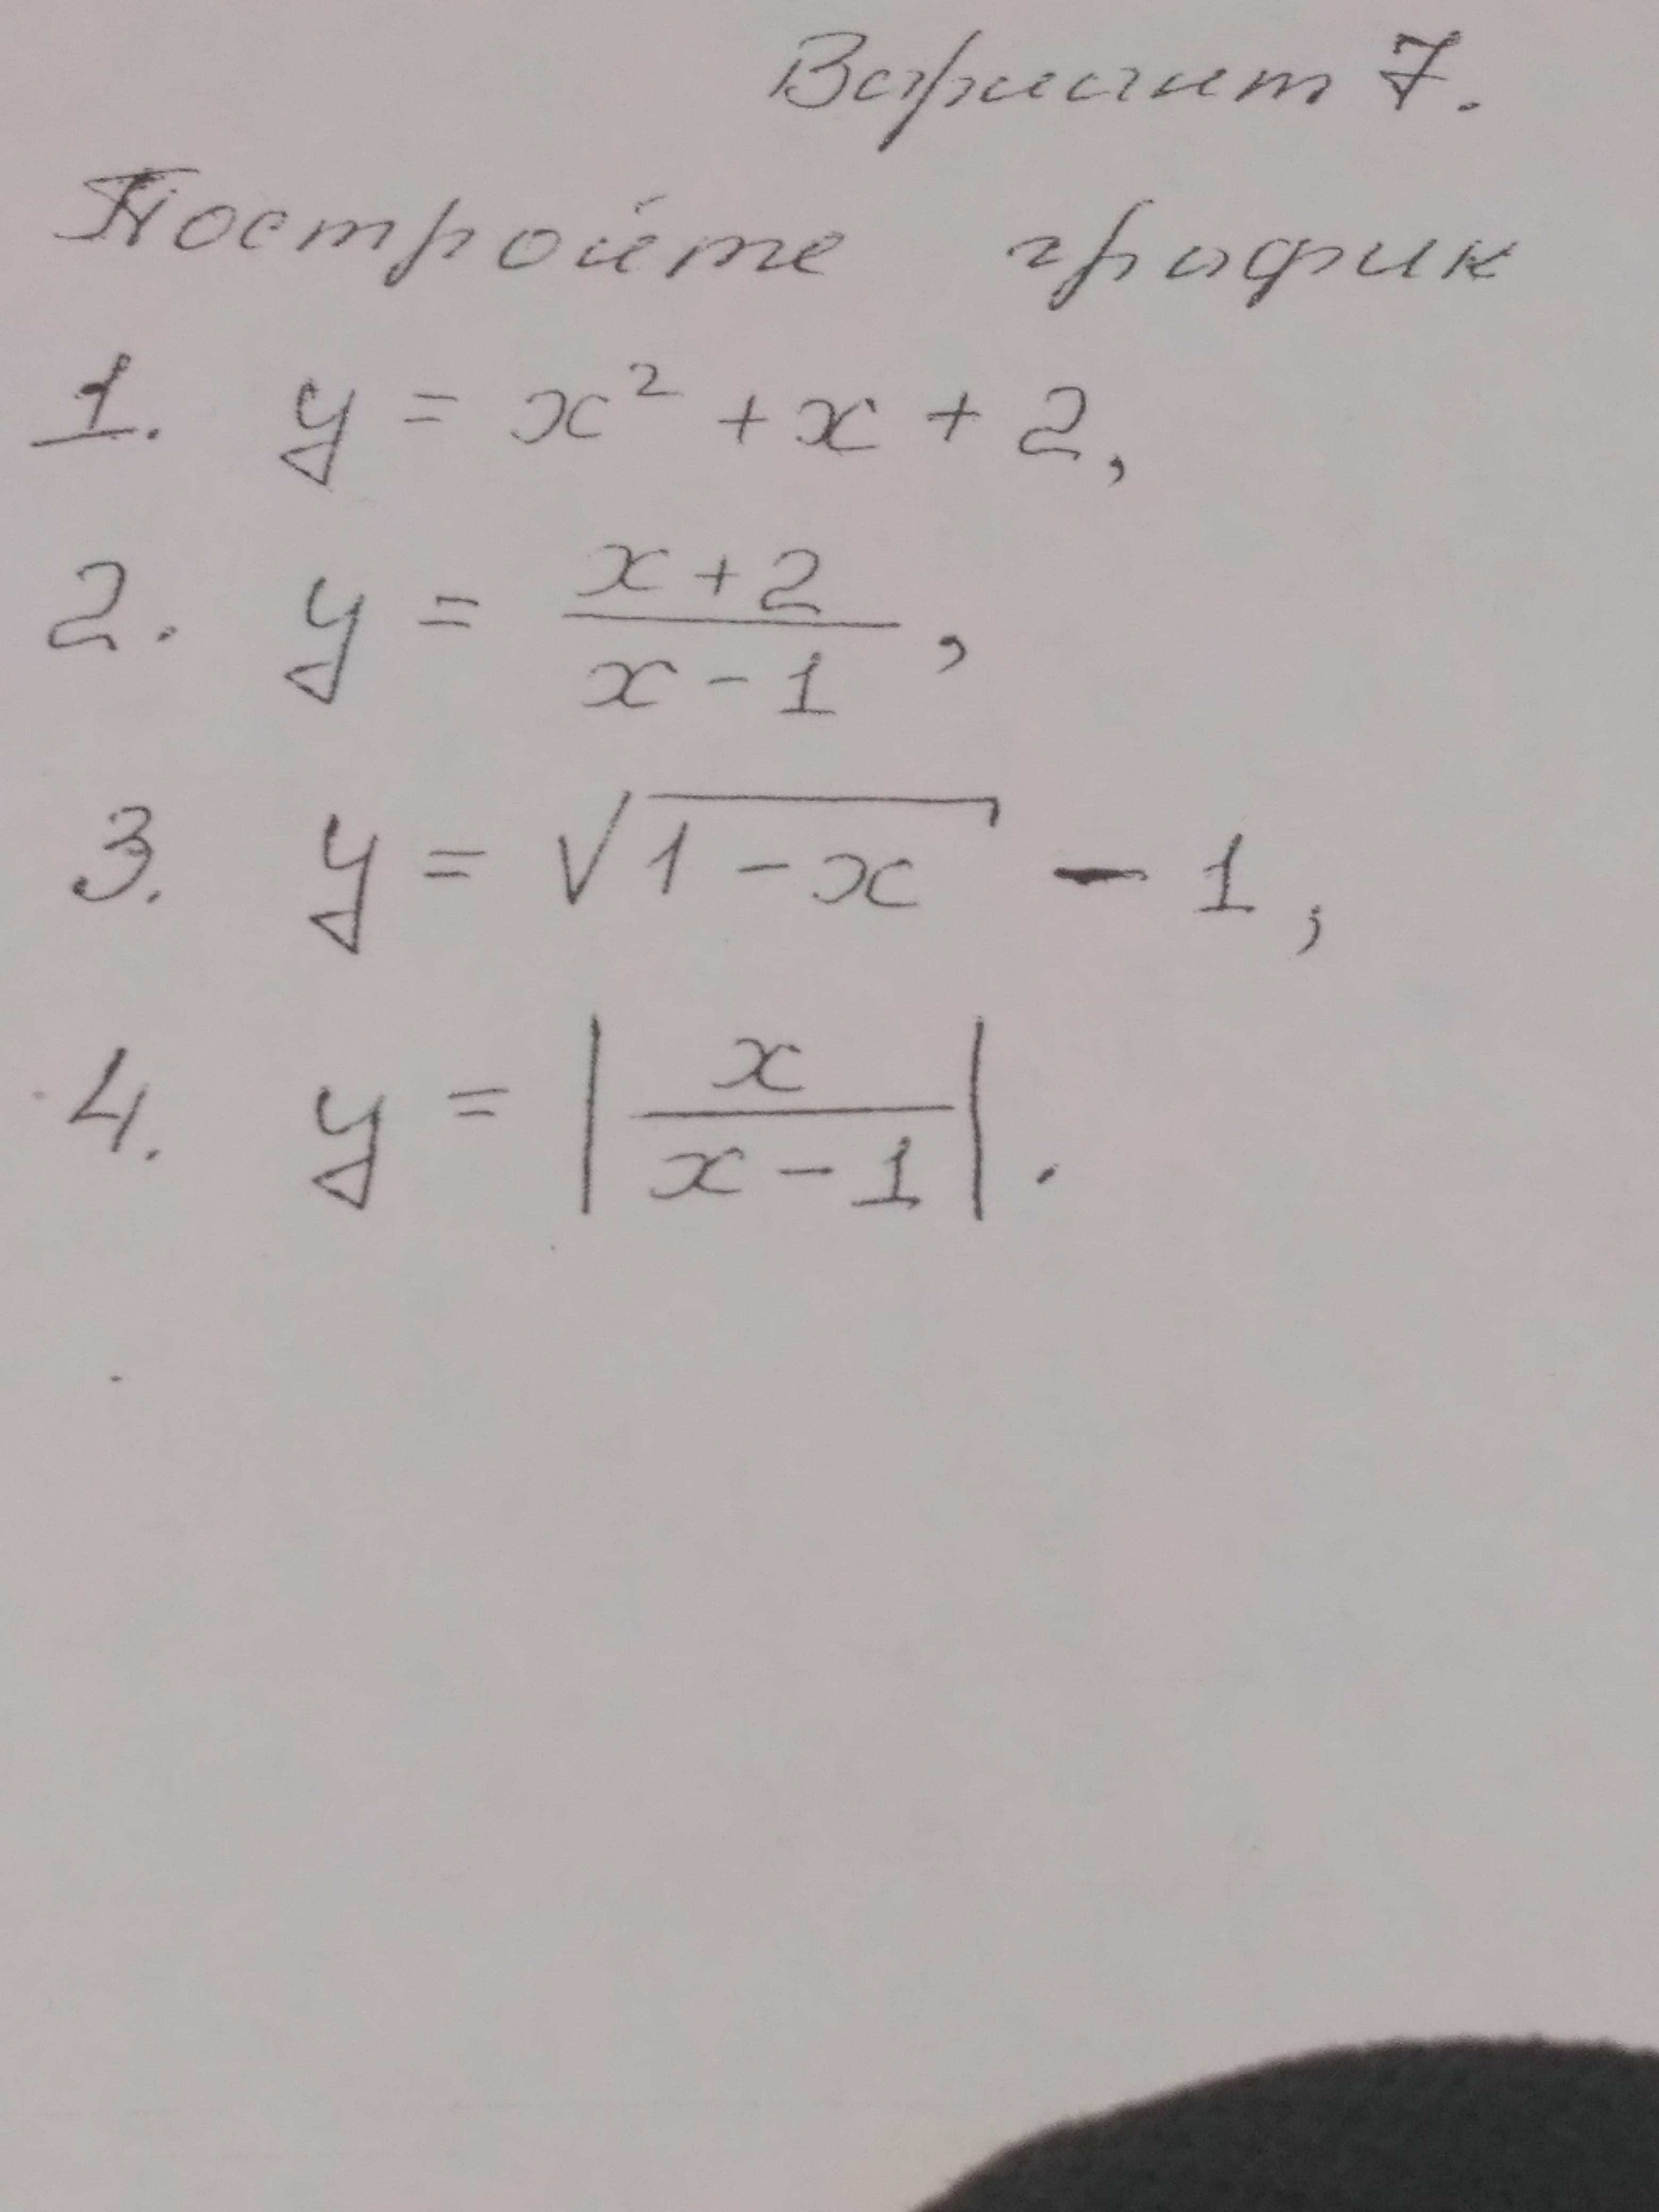 Вариант 7.
Постройте график
1. y = x² + x + 2,
2. y = \frac{x+2}{x-1},
3. y = √(1-x) - 1,
4. y = |\frac{x}{x-1}|.